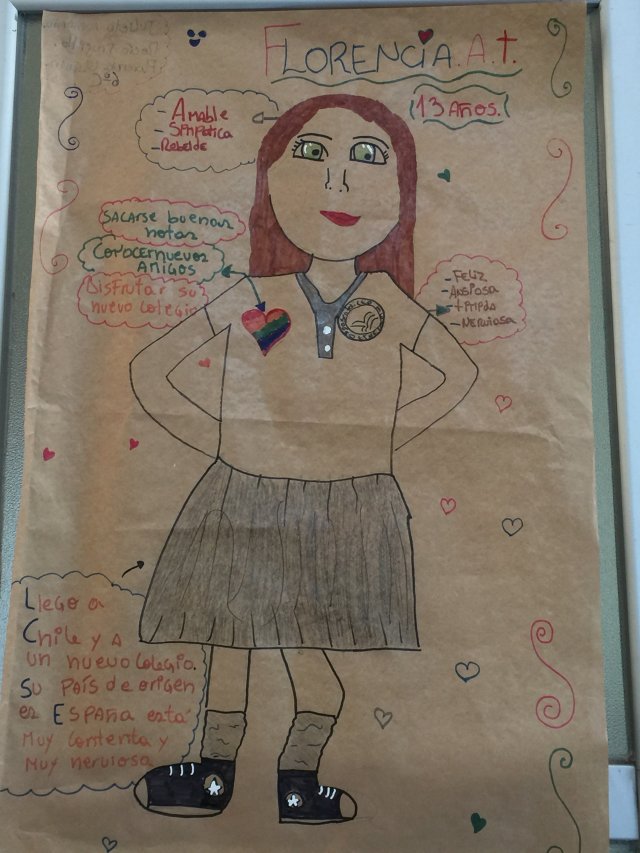 FLORENCIA.A.t.
(13 AÑOS.)
- AMABLE
- SIMPATICA
- Rebelde
SACARSE buenas
notas
CONOCER nuevos
AMIGOS
DISFRUTAR SU
nuevo colegio
- FELIZ
- ANSIOSA
- tImIda
- NERVIOSA
LLEGO A
Chile y A
un nuevo colegio
Su PAÍS de ORIGEN
es ESPAÑA está
Muy contenta y
Muy nerviosa
6°C